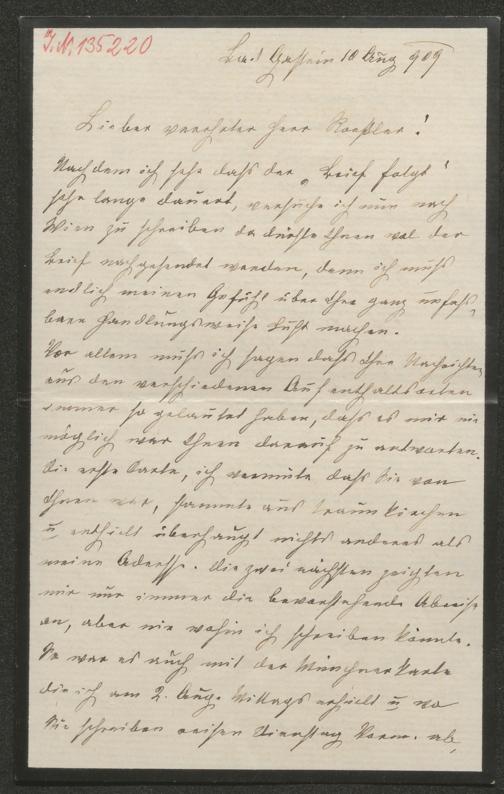 I.N. 135220
Bad Gastein 10 Aug 909
Lieber verehrter Herr Roessler!
Nachdem ich sehe dass der „Brief folgt"
sehr lange dauert, versuche ich nun nach
Wien zu schreiben da dürfte Ihnen wol der
Brief nachgesendet werden, denn ich muss
endlich meinen Gefühl über Ihre ganz unfass-
bare Handlungsweise Luft machen.
Vor allem muss ich sagen dass Ihre Nachrichten
aus den verschiedenen Aufenthaltsorten
immer so gelautet haben, dass es mir nie
möglich war Ihnen darauf zu antworten.
Die erste Carte, ich vermute dass Sie von
Ihnen war, stammte aus Traunkirchen
u enthielt überhaupt nichts anderes als
meine Adresse. Die zwei nächsten zeigten
mir nur immer die bevorstehende Abreise
an, aber nie wohin ich schreiben könnte.
So war es auch mit der Münchner Karte
die ich am 2. Aug. Mittags erhielt u wo
Sie schreiben reisen Dienstag Vorm. ab,